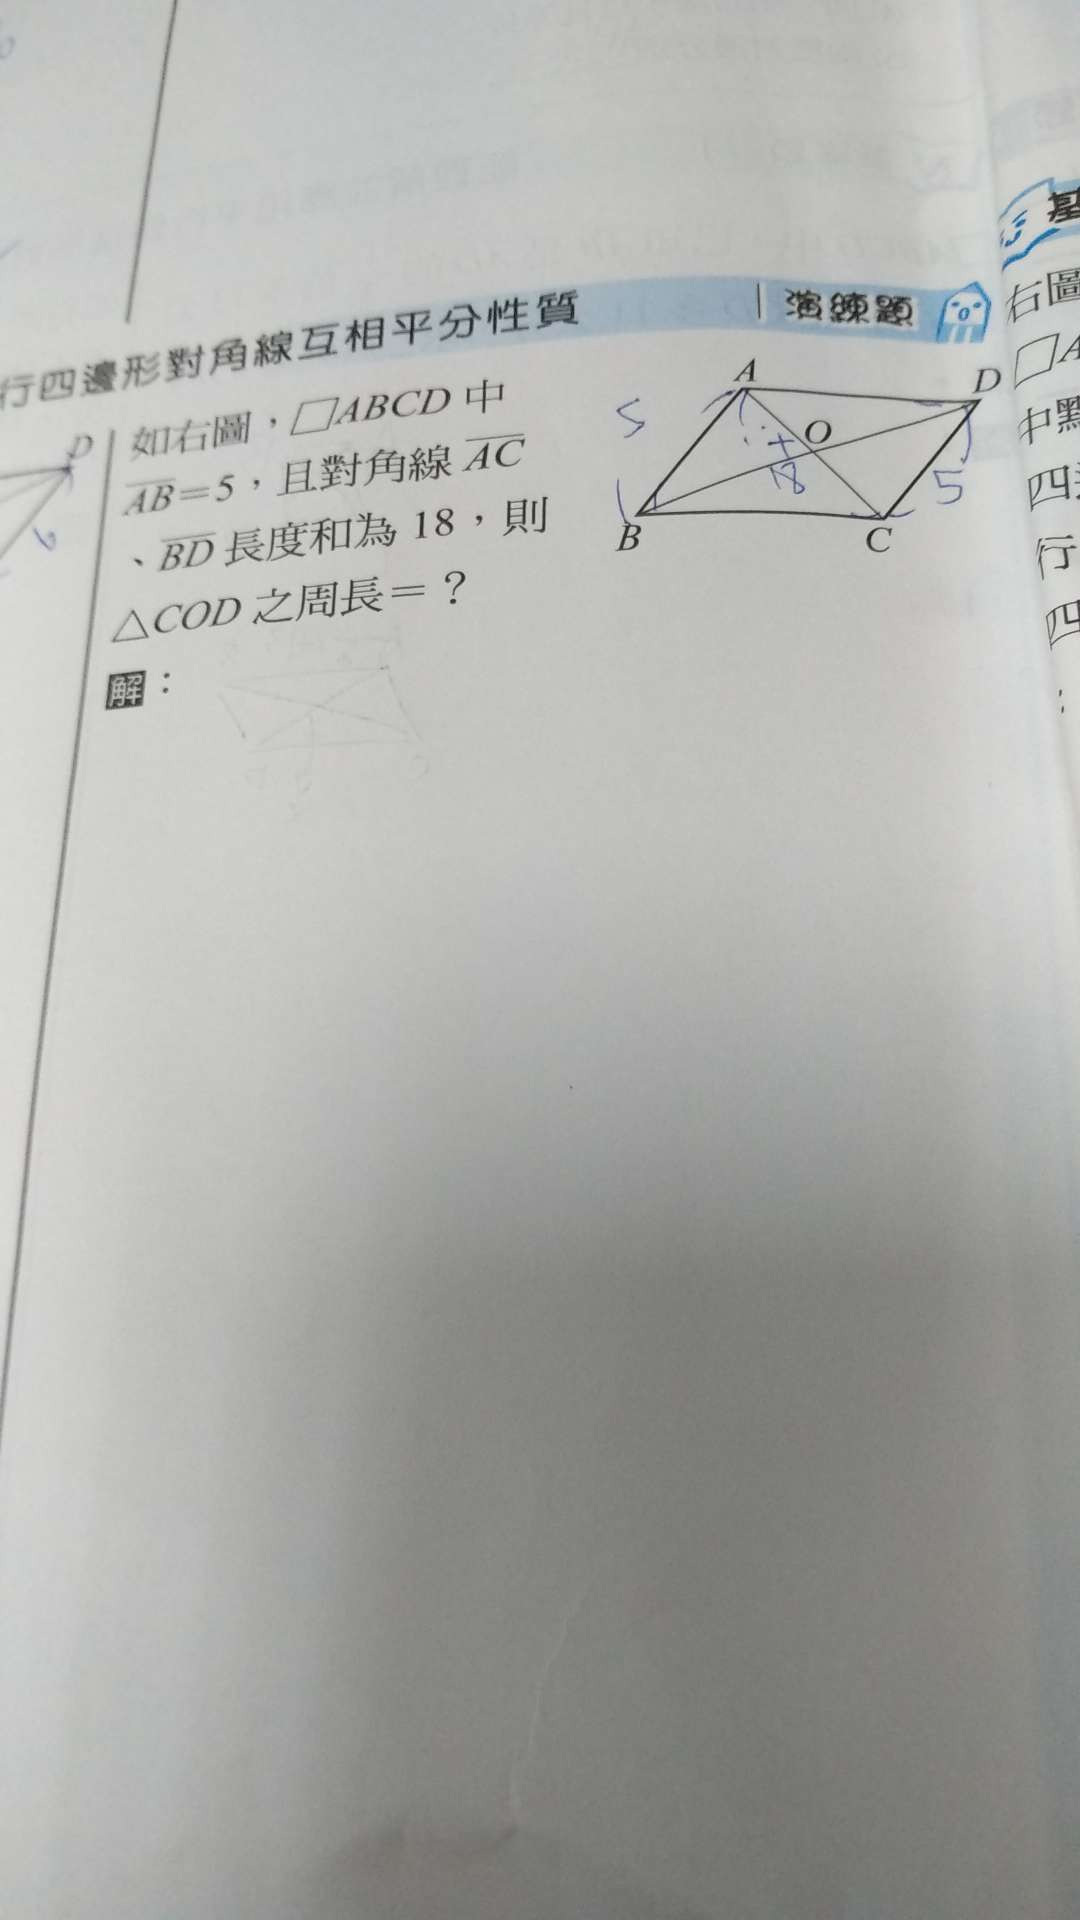 行四邊形對角線互相平分性質
演練題
如右圖，▱ABCD 中
AB=5，且對角線 AC
、BD 長度和為 18，則
△COD 之周長=？
解：
A
D
O
B
C
5
+
18
5
D
基
右圖
▱A
中點
四邊
行
四
：